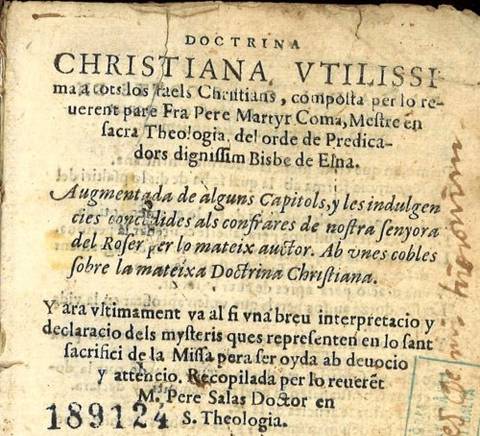 DOCTRINA
CHRISTIANA VTILISSI
ma a tots los faels Christians, composta per lo re-
uerent pare Fra Pere Martyr Coma, Mestre en
sacra Theologia, del orde de Predica-
dors dignissim Bisbe de Elna.
Augmentada de alguns Capitols, y les indulgen
cies concedides als confrares de nostra senyora
del Roser per lo mateix auctor. Ab vnes cobles
sobre la mateixa Doctrina Christiana.
Y ara vltimament va al fi vna breu interpretacio y
declaracio dels mysteris ques representen en lo sant
sacrifici de la Missa pera ser oyda ab deuocio
y attencio. Recopilada per lo reuerēt
M. Pere Salas Doctor en
S. Theologia.
189124